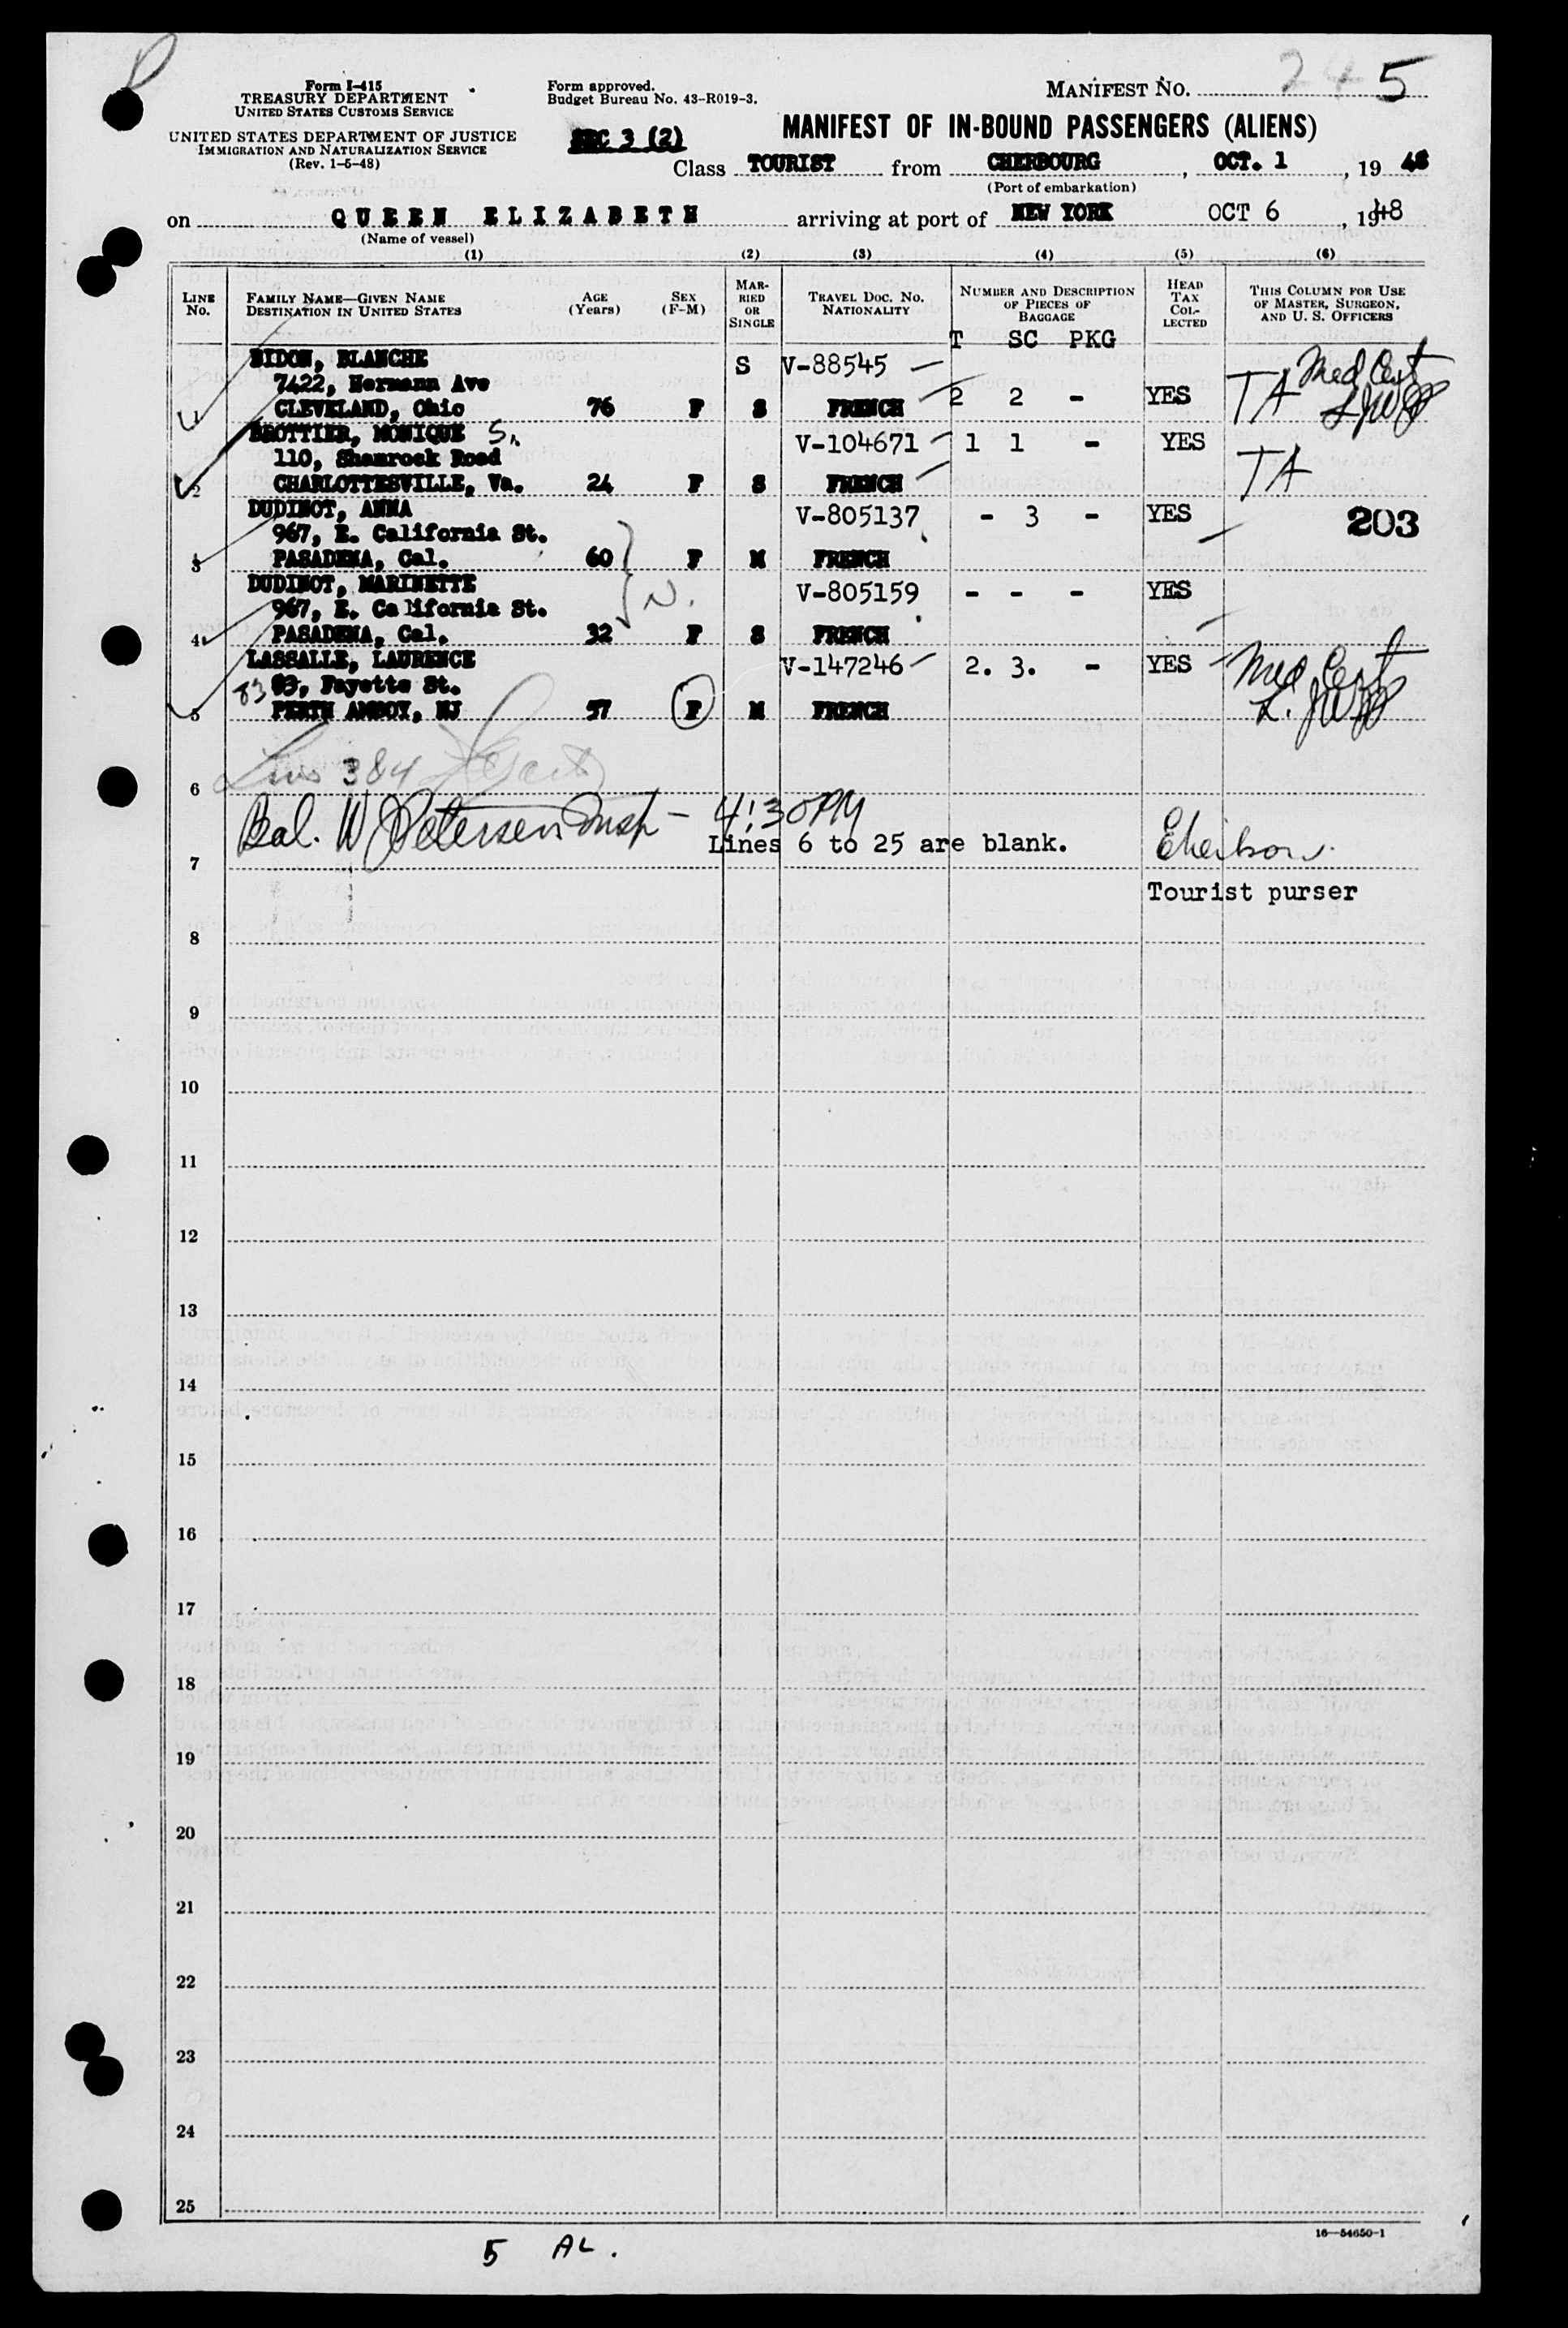 Form I-415
TREASURY DEPARTMENT
UNITED STATES CUSTOMS SERVICE
UNITED STATES DEPARTMENT OF JUSTICE
IMMIGRATION AND NATURALIZATION SERVICE
(Rev. 1-5-48)
Form approved.
Budget Bureau No. 43-R019-3.
SEC 3 (2)
MANIFEST NO. 5
MANIFEST OF IN-BOUND PASSENGERS (ALIENS)
Class TOURIST from CHERBOURG, OCT. 1, 19 48
(Port of embarkation)
on QUEEN ELIZABETH arriving at port of NEW YORK OCT 6, 1948
(Name of vessel)
(1) (2) (3) (4) (5) (6)
LINE No.
FAMILY NAME—GIVEN NAME
DESTINATION IN UNITED STATES
AGE (Years)
SEX (F-M)
MARRIED OR SINGLE
TRAVEL DOC. NO. NATIONALITY
NUMBER AND DESCRIPTION OF PIECES OF BAGGAGE
HEAD TAX COLLECTED
THIS COLUMN FOR USE OF MASTER, SURGEON, AND U. S. OFFICERS
T SC PKG
BIDON, BLANCHE S V-88545
7422, Hermann Ave 2 2 - YES TA Med Cert
1 CLEVELAND, Ohio 76 F S FRENCH
BROTTIER, MONIQUE S. V-104671 1 1 - YES
110, Shamrock Road TA
2 CHARLOTTESVILLE, Va. 24 F S FRENCH
DUDINOT, ANNA V-805137 - 3 - YES 203
967, E. California St.
3 PASADENA, Cal. 60 F M FRENCH
DUDINOT, MARINETTE V-805159 - - - YES
967, E. California St. N.
4 PASADENA, Cal. 32 F S FRENCH
LASSALLE, LAURENCE V-147246 2. 3. - YES Med Cert
83 83, Fayette St.
5 PERTH AMBOY, NJ 57 F M FRENCH
384
6
Bal. W Petersen Insp - 4:30 PM
Lines 6 to 25 are blank.
7
Tourist purser
8
9
10
11
12
13
14
15
16
17
18
19
20
21
22
23
24
25
16—54650-1
5 AL.